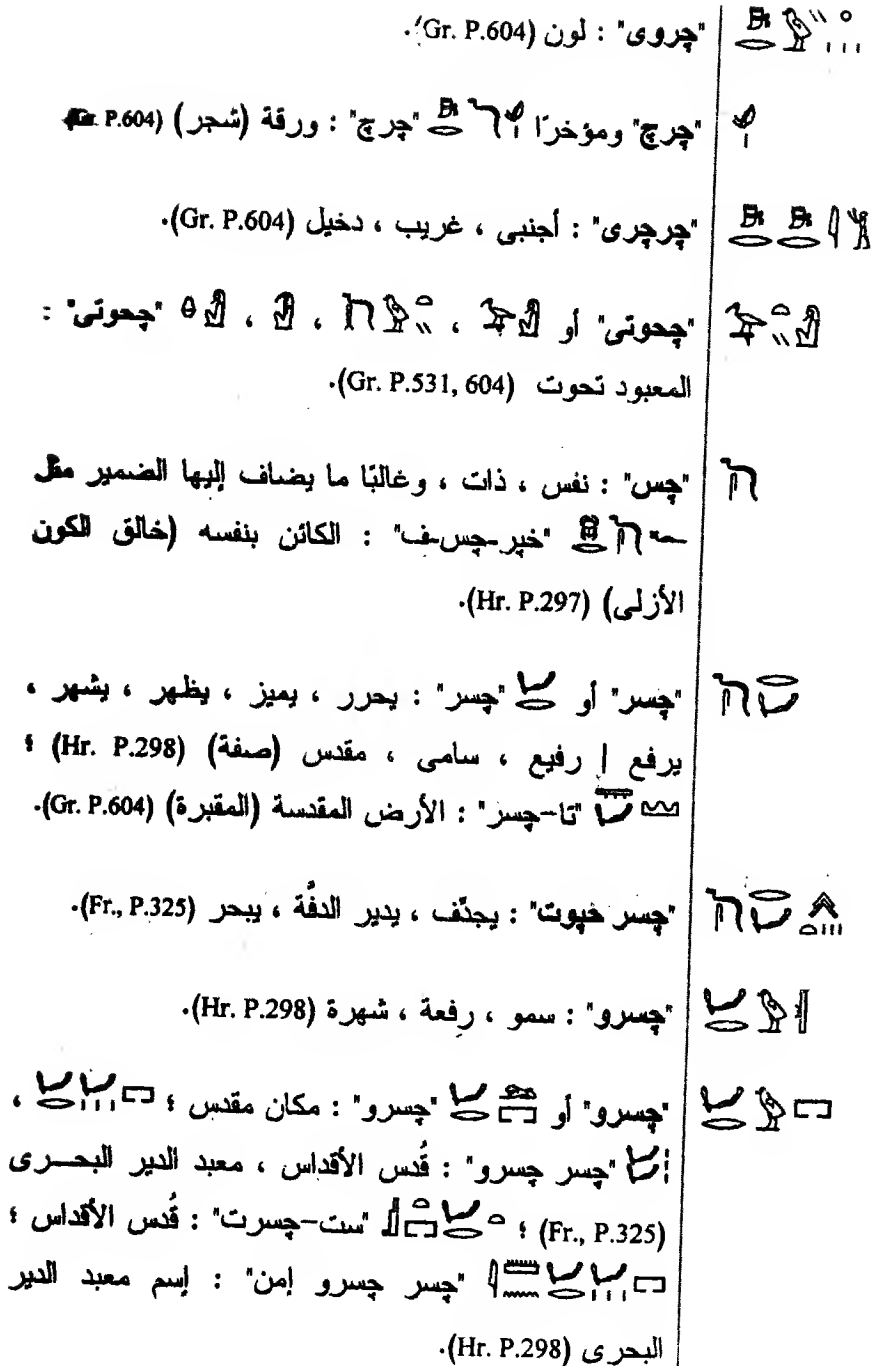 "چروى" : لون (Gr. P.604).
"چرچ" ومؤخرًا "چرچ" : ورقة (شجر) (Gr. P.604)
"چرچرى" : أجنبى ، غريب ، دخيل (Gr. P.604).
"چحوتى" أو ، ، ، "چحوتى" :
المعبود تحوت (Gr. P.531, 604).
"چس" : نفس ، ذات ، وغالبًا ما يضاف إليها الضمير مثل
"خپر-چس-ف" : الكائن بنفسه (خالق الكون
الأزلى) (Hr. P.297).
"چسر" أو "چسر" : يحرر ، يميز ، يظهر ، يشهر ،
يرفع | رفيع ، سامى ، مقدس (صفة) (Hr. P.298) ؛
"تا-چسر" : الأرض المقدسة (المقبرة) (Gr. P.604).
"چسر خپوت" : يجدّف ، يدير الدفَّة ، يبحر (Fr., P.325).
"چسرو" : سمو ، رفعة ، شهرة (Hr. P.298).
"چسرو" أو "چسرو" : مكان مقدس ؛ ،
"چسر چسرو" : قُدس الأقداس ، معبد الدير البحرى
(Fr., P.325) ؛ "ست-چسرت" : قُدس الأقداس ؛
"چسر چسرو إمن" : إسم معبد الدير
البحرى (Hr. P.298).